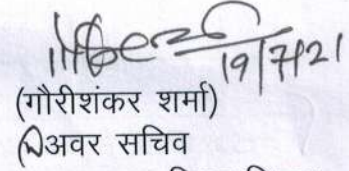 19/7/21
(गौरीशंकर शर्मा)
अवर सचिव